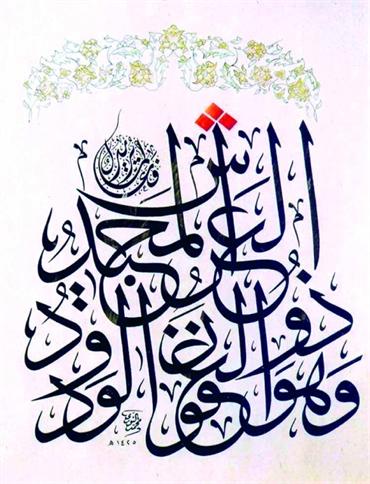 وهو الغفور الودود
ذو العرش المجيد
فعال لما يريد
١٤٢٥ هـ